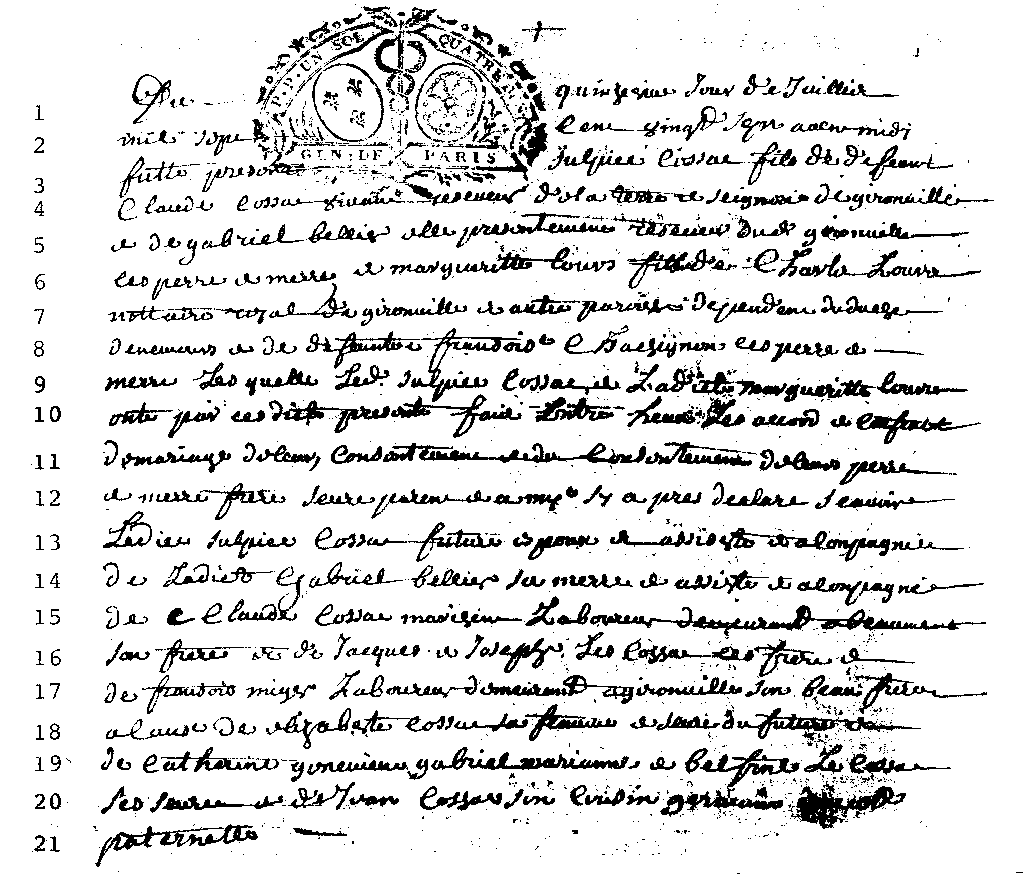 P.P. UN SOL QUATRE
GEN. DE PARIS
1 Du quinzesme Jour de Juillier
2 mil sept Cent vingt sept aven midi
3 futte presente sulpice Cossac fils de defeunt
4 Claude Cossac vivant reseveur de la terre e seignorie de gironville
5 e de gabriel bellier elle presentemene reseveur dudt gironville
6 ces perre e merre e de margueritte Louvr fille de Charle Louvre
7 nottaire royal de gironville e autre paroise dependene du duege
8 denemours e de defeunte fransoise Chassignon ces perre e
9 merre Les quelle Ledt sulpice Cossac e Laditte margueritte Louvre
10 onte par ces dicte presente faic Lintre heux Les accord e
11 demariage deleur Consantemene e du Consentemene deleurs perre
12 e merre frere seure parene e amye sy apres declare scavoir
13 Ledic sulpice Cossac future epoux e assiste e aCompagnie
14 de Ladict Gabriel bellier sa merre e assiste e aCompagnie
15 de Claude Cossac Laboureur demeurand a beaumont
16 son frere e de Jacques e Joseph Les Cossac ces frere e
17 de fransois miger Laboureur demeurand agironville son beau frere
18 a Cause de elizabette Cossac sa femme e seure du future e
19 de Catherine genevieve gabriel marianne e Les Cossac
20 ses seure e de Jean Cossac son Cousin germain
21 paternelle